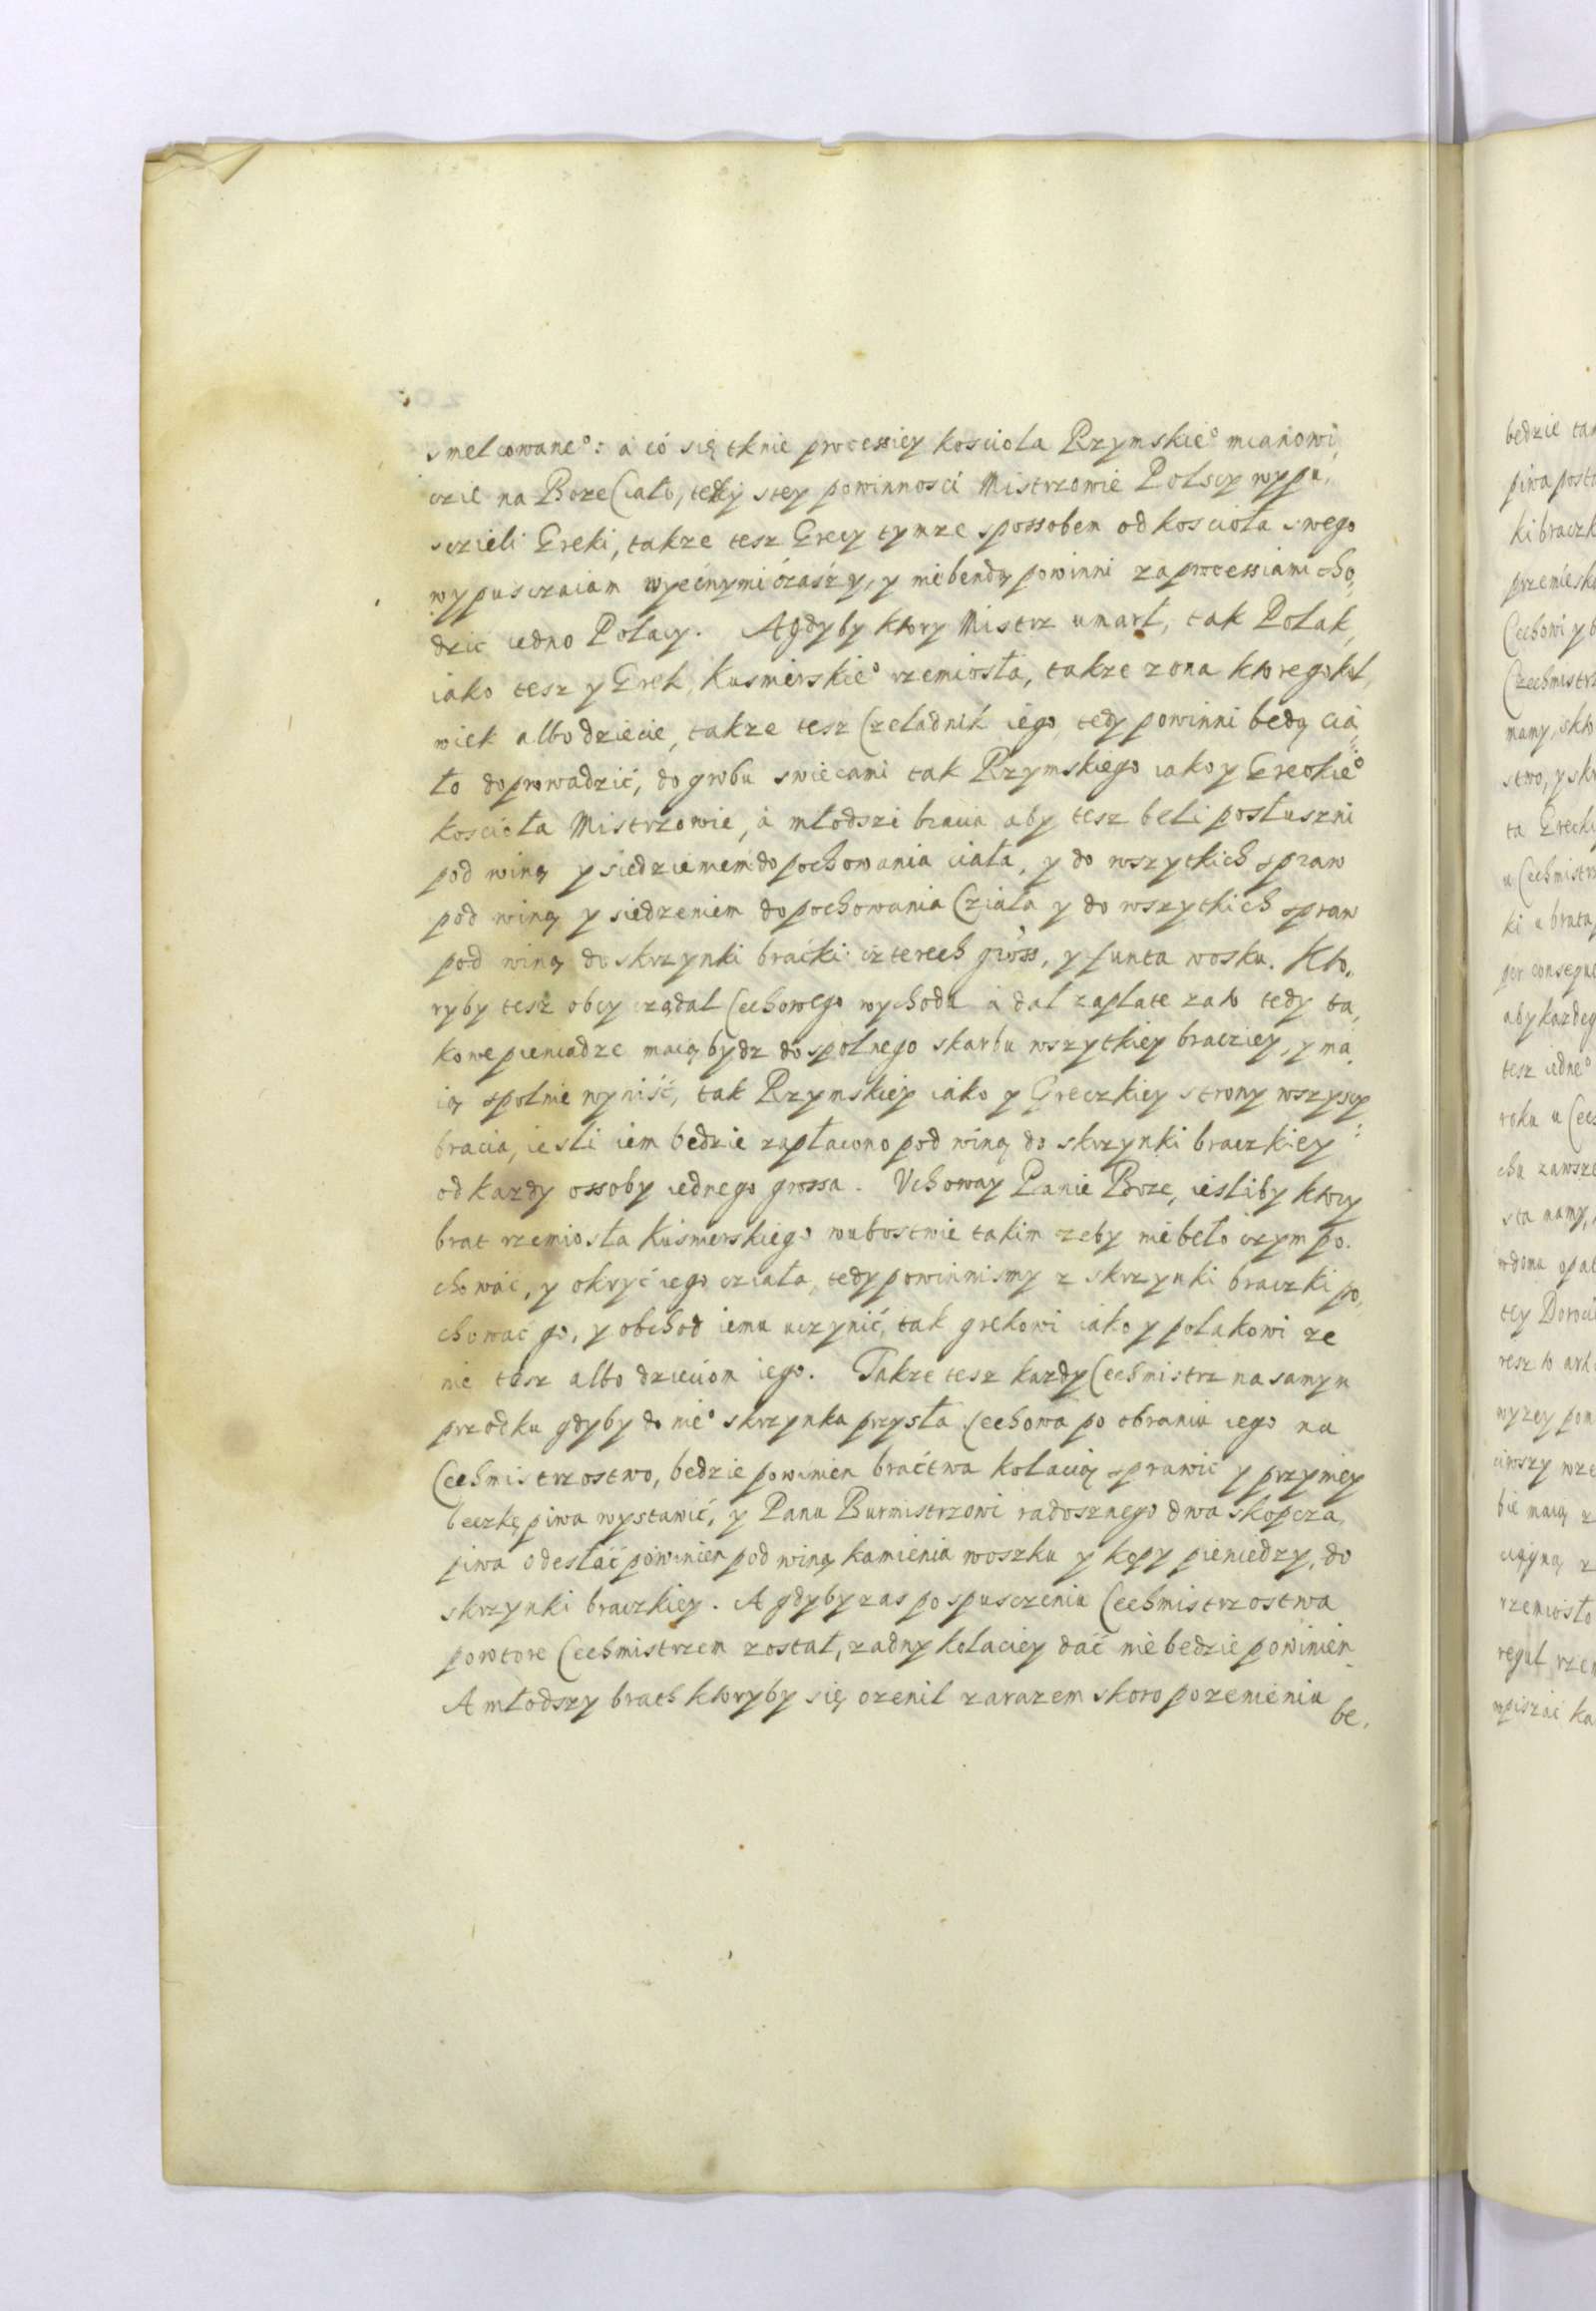 smelcowane°: a có się tknie processiey kosciola Rzymskie° mianowi,
czie na Boze Ciało, tedy stey powinnosci Mistrzowie Polscy wypu,
sczieli Greki, takze tesz Grecy tymze spossobem od kosciola swego
wypusczaiam wyecnymi czaśzy, y niebendą powinni zaprocessiami cho,
dzic iedno Polacy. A gdyby ktory Mistrz umarł, tak Polak,
iako tesz y Grek, kusmierskie° rzemiosła, takze zona ktoregokol,
wiek albo dziecie, takze tesz Czeladnik iego, tedy powinni bedą cia,
ło doprowadzić, do grobu swiecami tak Rzymskiego iako y Greckie°
kościoła Mistrzowie, a młodszi bracia aby tesz beli posłuszni
pod winą y siedziemem do pochowania ciała, y do wszytkich spraw
pod winą y siedzeniem do pochowania Cziała y do wszytkich spraw
pod winą do skrzynki braćki czterech gross, y funta wosku. Kto,
ryby tesz obcy rządal Cechowego wychodu a dal zaplate zato tedy ta,
kowe pieniadze maią bydz do spolnego skarbu wszytkiey braciey, y ma,
ią spolnie wyniść, tak Rzymskiey iako y Greczkiey strony wszyscy
bracia, iesli iem bedzie zapłacono pod winą do skrzynki braczkiey
od kazdy ossoby iednego grossa. Uchoway Panie Boze, iesliby ktory
brat rzemiosła kusmerskiego wubostwie takim zeby niebeło czym po.
chować, y okryć iego cziała, tedy powinnismy z skrzynki braczki po,
chować go, y obchod iemu uczynić, tak grekowi iako y polakowi ze
nie tesz albo dziecion iego. Takze tesz kazdy Cechmistrz na samym
przodku gdyby do nie° skrzynka przysła Cechowa po obraniu iego na
Cechmistrzostwo, bedzie powinien braćtwa kolacią sprawic y przymiey
beczkę piwa wystawić, y Panu Burmistrzowi radosznego dwa skopcza
piwa odesłać powinien pod winą kamienia woszku y kopy pieniedzy, do
skrzynki braczkiey. A gdyby zas po spusczeniu Cechmistrzostwa
powtore Cechmistrzem został, zadny kolaciey dać niebedzie powinien
A młodszy brath ktoryby się ozenil zarazem skoro pozenieniu
be,
bedzie
piwa
ki
Cechowi y
mamy,
stwo, y
ta
ki
tesz iedne°
roku u
chu zawsze
sta mamy,
rzemiosło
regul